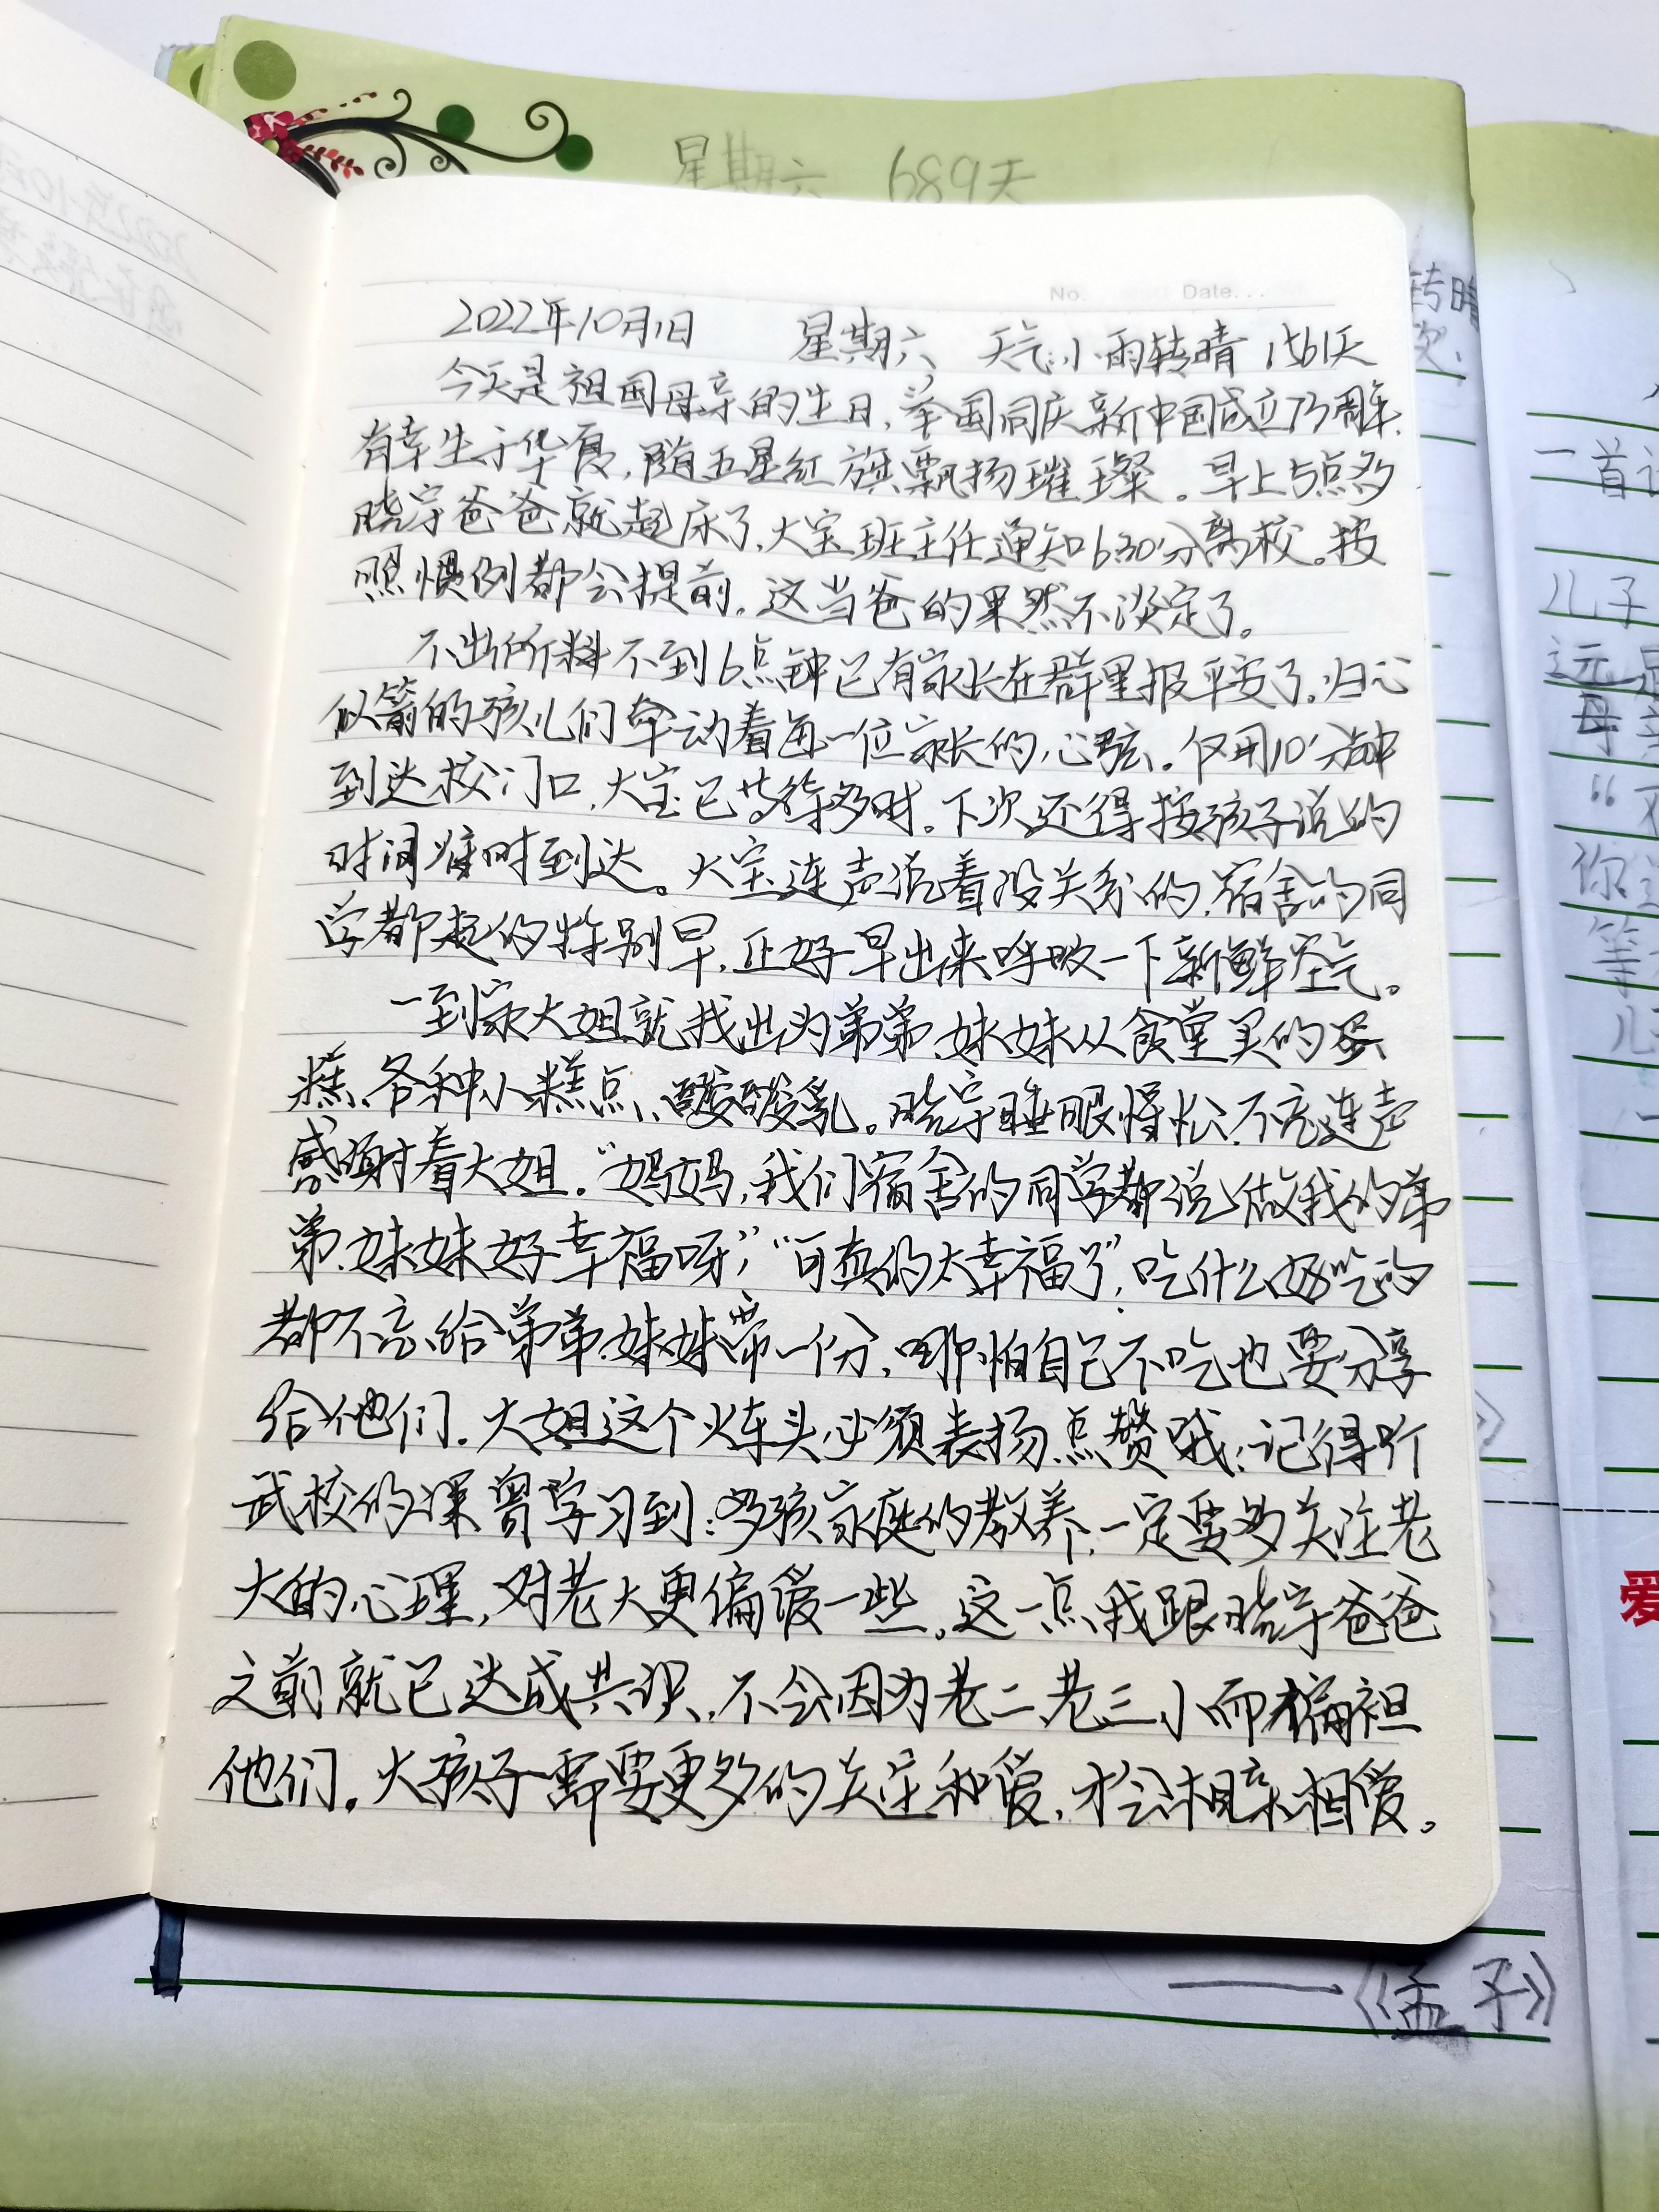 星期六 689天
No. Date...
2022年10月1日 星期六 天气:小雨转晴 1561天
今天是祖国母亲的生日,举国同庆新中国成立73周年.
有幸生于华夏,随五星红旗飘扬璀璨。早上5点多
晓宇爸爸就起床了,大宝班主任通知6:30分离校。按
照惯例都会提前,这当爸的果然不淡定了。
不出所料不到6点钟已有家长在群里报平安了.归心
似箭的孩儿们牵动着每一位家长的心弦。仅用10分钟
到达校门口,大宝已等多时。下次还得按孩子说的
时间准时到达。大宝连声说着没关系的,宿舍的同
学都起的特别早,正好早出来呼吸一下新鲜空气。
一到家大姐就找出为弟弟、妹妹从食堂买的蛋
糕、各种小糕点、酸酸乳。晓宇睡眼惺忪、不忘连声
感谢着大姐。“妈妈,我们宿舍的同学都说,做我的弟
弟、妹妹好幸福呀”,“可真的太幸福了”,吃什么好吃的
都不忘给弟弟、妹妹带一份,哪怕自己不吃也要分享
给他们.大姐这个火车头,必须表扬、点赞哦;记得听
武校的课曾学习到:多孩家庭的教养,一定要多关注老
大的心理,对老大更偏爱一些。这一点我跟晓宇爸爸
之前就已达成共识,不会因为老二、老三小而偏袒
他们。大孩子需要更多的关注和爱,才会相亲相爱。
转晴
次.
一首
儿子
远
母亲
“不
你
等
儿
一
爱
——《孟子》